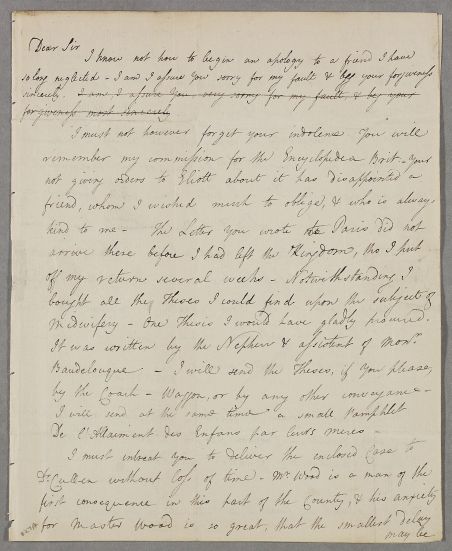 Dear Sir
I know not how to begin an apology to a friend I have
so long neglected - I am I assure you sorry for my fault & beg your forgiveness
sincerely. I am I assure You very sorry for my fault, & beg your
forgiveness most sincerely
I must not however forget your indolence You will
remember my commission for the Encyclopidea Brit - Your
not giving orders to Eliott about it has disappointed a
friend, whom I wished much to oblige, & who is always
kind to me - The Letter you wrote to Paris did not
arrive there before I had left the Kingdom, tho I put
off my return several weeks - Notwithstanding I
bought all the Theses I could find upon the subject of
Midwifery - One Thesis I would have gladly procured.
It was written by the Nephew & assistent of Monr.
Baudelouque - I will send the Theses, if You please,
by the Coach - Waggon, or by any other conveyance -
I will send at the same time a small Pamphlet
De l'Allaiment des Enfans par leurs meres -
I must intreat you to deliver the enclosed Case to
Dr Cullen without loss of time - Mr Wood is a man of the
first consequence in this part of the County, & his anxiety
for Master Wood is so great, that the smallest delay
may be